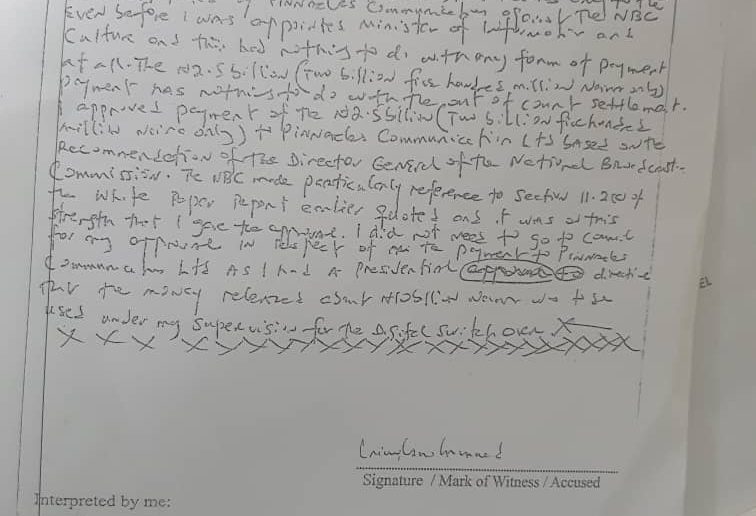 Pinnacles Communication against The NBC
Even before I was appointed Minister of Information and
Culture and this had nothing to do with any form of payment
at all. The N2.5billion (Two billion five hundred million Naira only)
Payment has nothing to do with the out of court settlement.
I approved payment of the N2.5billion (Two billion five hundred
million Naira only) to Pinnacles Communication Ltd based on the
Recommendation of the Director General of the National Broadcast-
Commission. The NBC made particularly reference to Section 11.2(c) of
the White Paper Report earlier quoted and it was on this
strength that I gave the approval. I did not need to go to Council
for any approval in respect of the payment to Pinnacles
Communication Ltd As I had a Presidential directive
that the money released about N10billion Naira was to be
used under my supervision for the Digital Switch over X
X X X X X X X X X X X X X X X X X X X X X X
Signature / Mark of Witness / Accused
Interpreted by me: